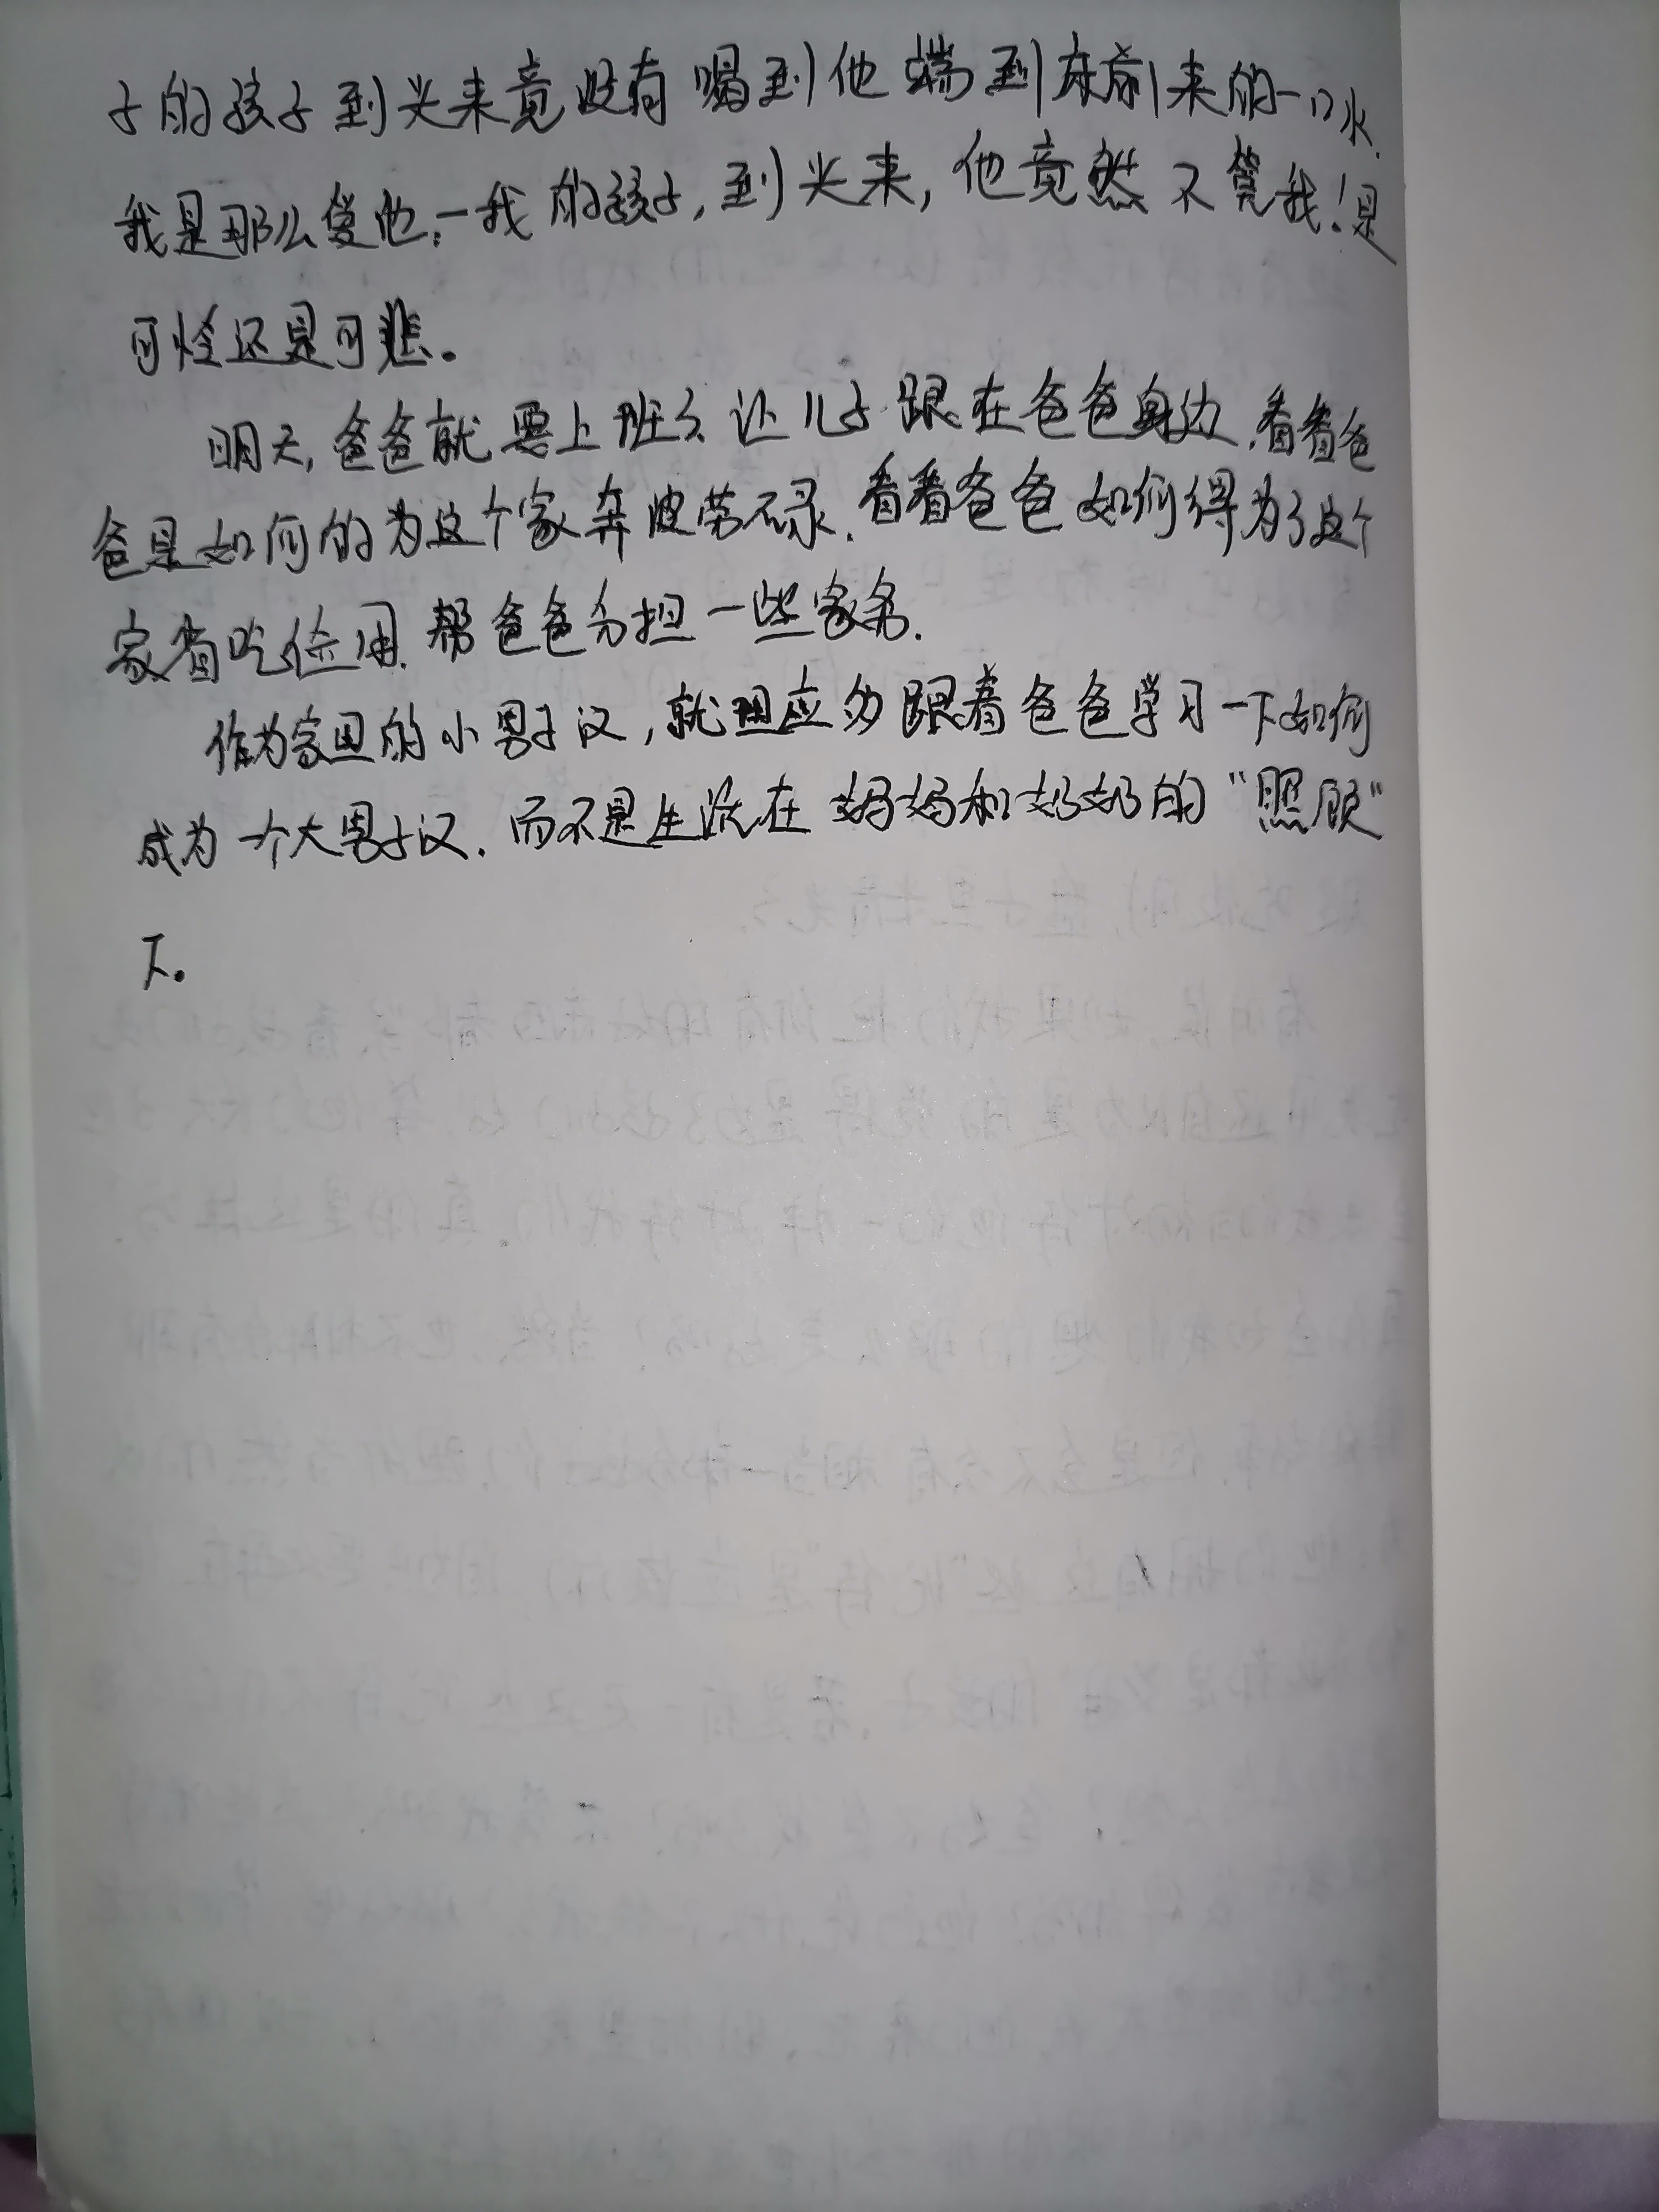 子的孩子到头来竟没有喝到他端到床前来的一口水.
我是那么爱他:一我的孩子,到头来,他竟然不管我!是
可怪还是可悲。
明天,爸爸就要上班了.让儿子跟在爸爸身边.看看爸
爸是如何的为这个家奔波劳碌.看看爸爸如何得为了这个
家省吃俭用.帮爸爸分担一些家务.
作为家里的小男子汉,就理应多跟着爸爸学习一下如何
成为一个大男子汉.而不是生活在妈妈和奶奶的“照顾”
下。